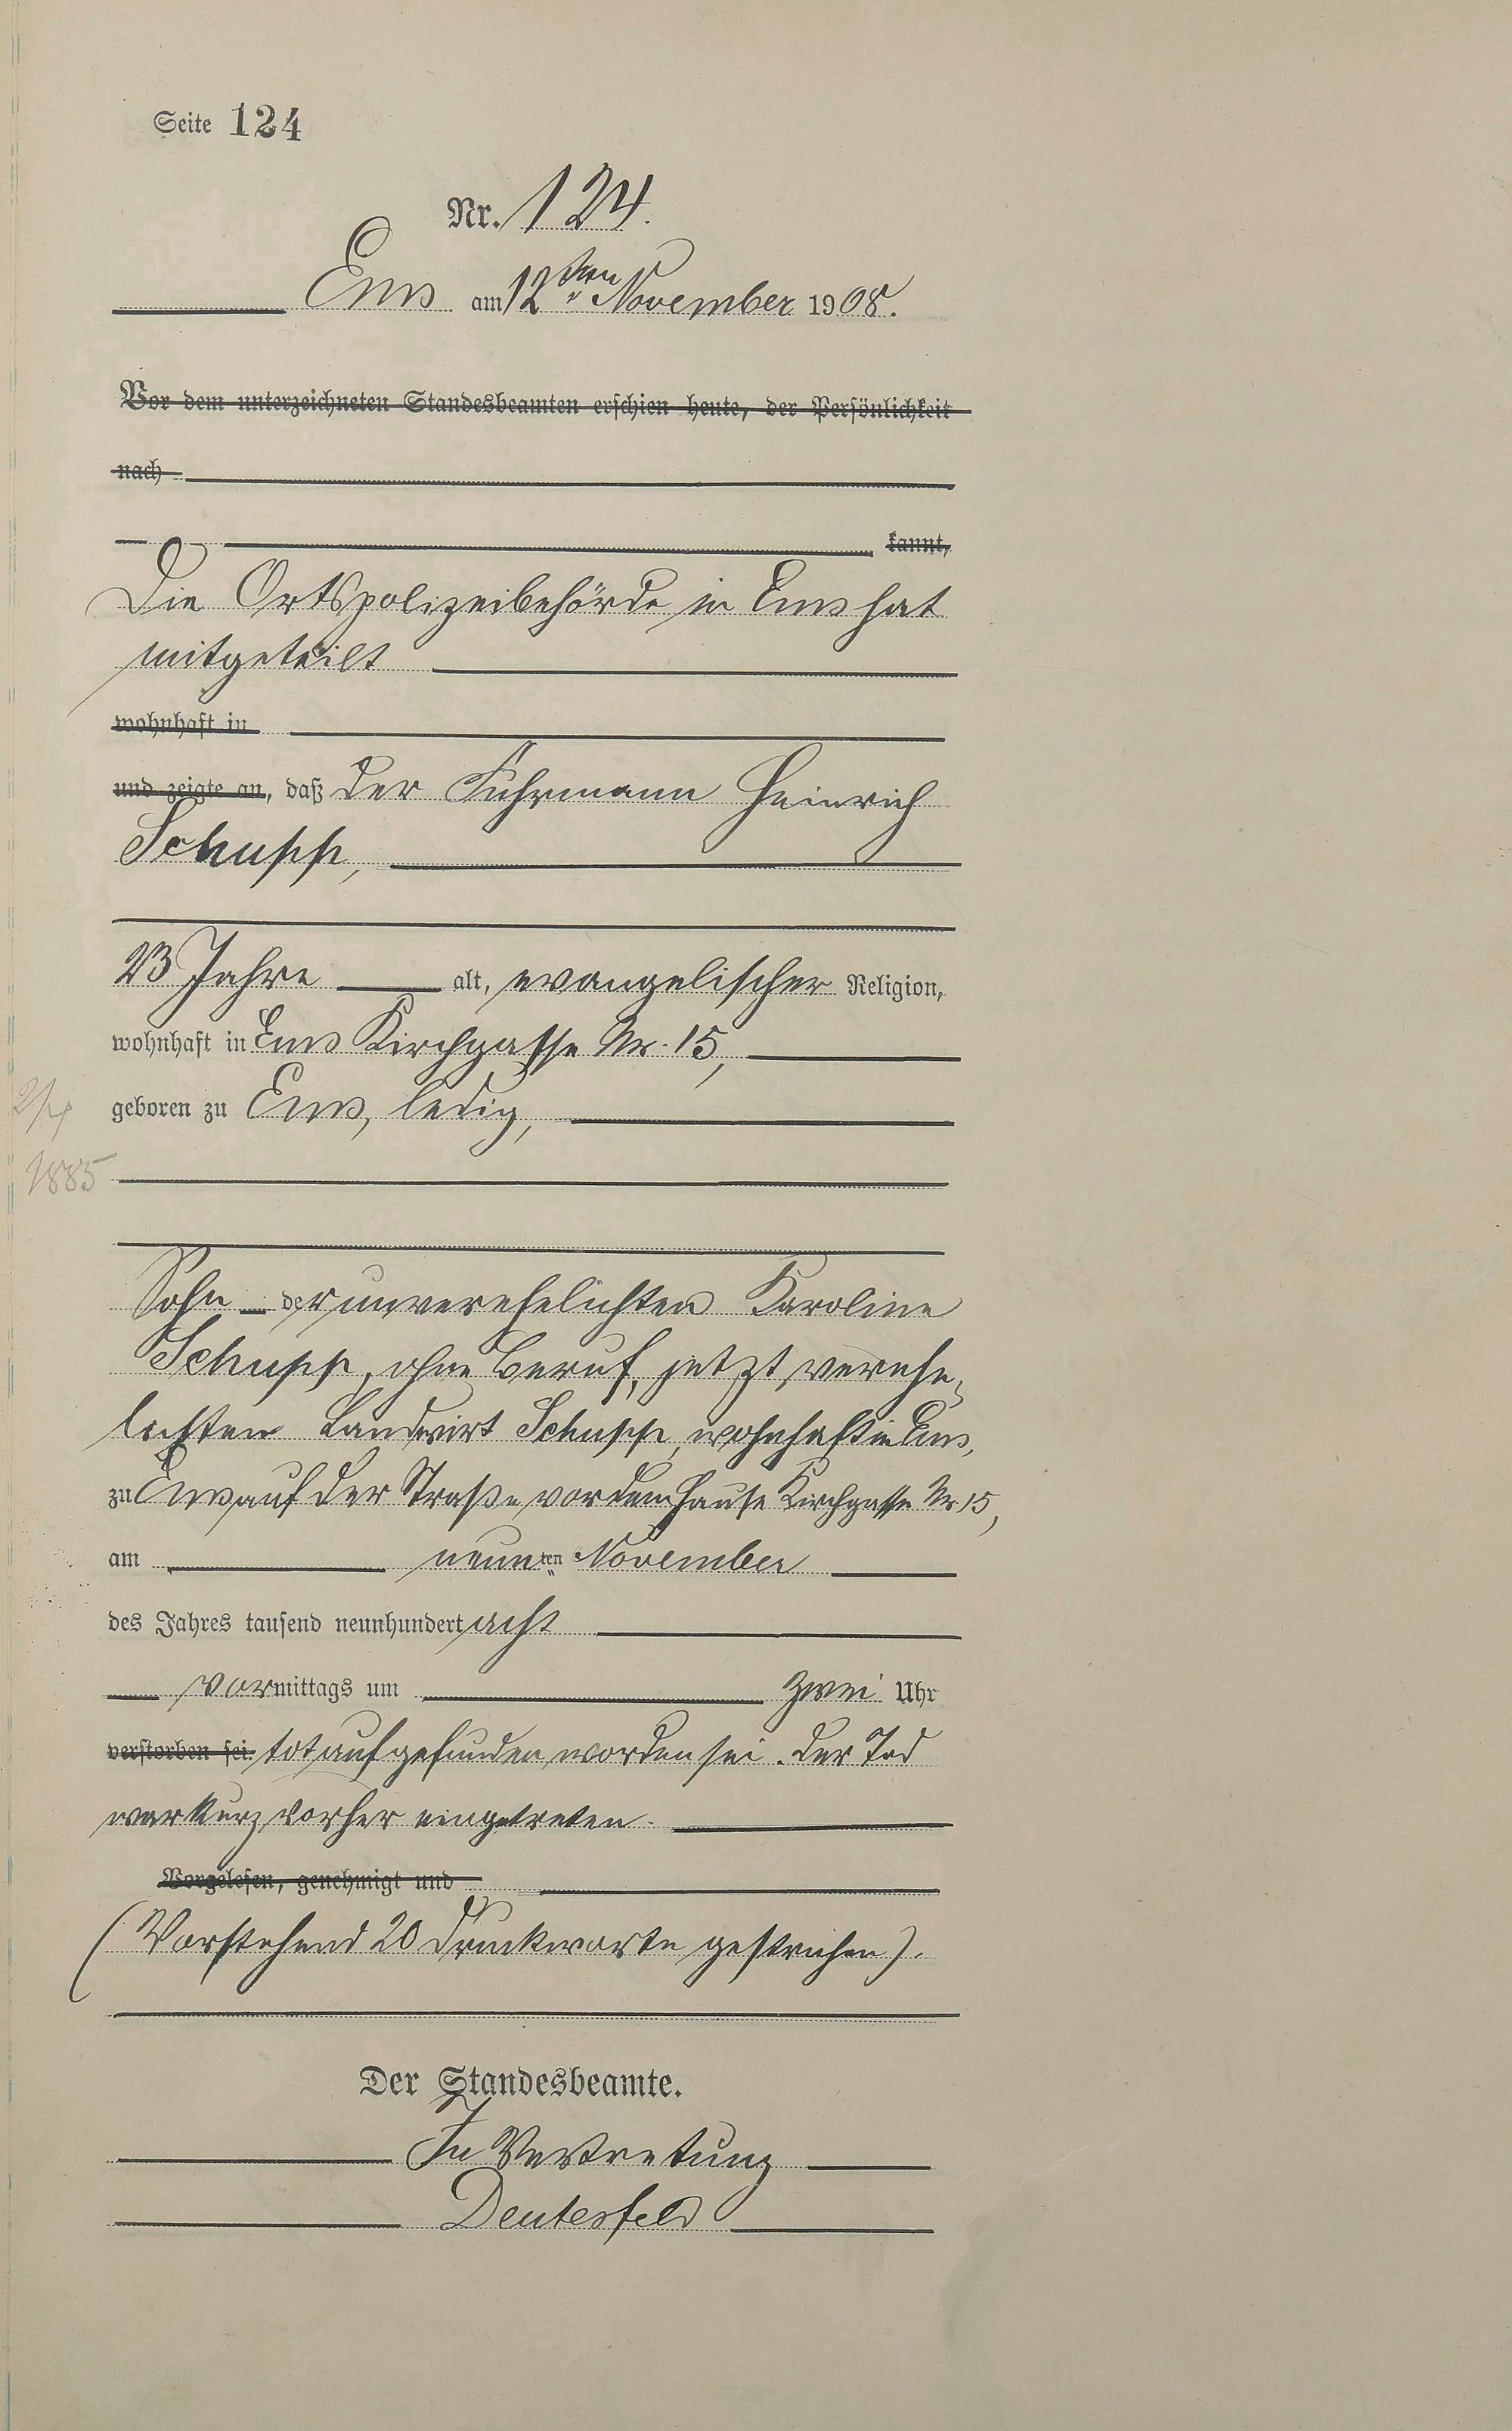 Seite 124
Nr. 124.
Ems am 12ten November 1908.
Vor dem unterzeichneten Standesbeamten erschien heute, der Persönlichkeit
nach
kannt,
Die Ortspolizeibehörde in Ems hat
mitgeteilt
wohnhaft in
und zeigte an, daß der Fuhrmann Heinrich
Schupp,
23 Jahre alt, evangelischer Religion,
wohnhaft in Ems Kirchgasse Nr. 15,
geboren zu Ems, ledig,
1885
Sohn der unverehelichten Karoline
Schupp, ohne Beruf, jetzt verehe-
lichten Landwirt Schupp, wohnhaft in Ems,
zu Ems auf der Straße vor dem Hause Kirchgasse Nr 15,
am neunten November
des Jahres tausend neunhundert acht
vormittags um zwei Uhr
verstorben sei. tot aufgefunden worden sei. Der Tod
war kurz vorher eingetreten.
Vorgelesen, genehmigt und
(Vorstehend 20 Druckworte gestrichen).
Der Standesbeamte.
In Vertretung
Deutesfeld